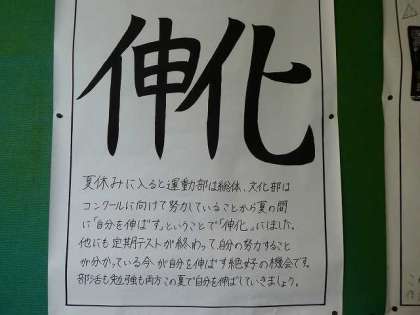 伸化
夏休みに入ると運動部は総体、文化部は
コンクールに向けて努力していることから夏の間
に「自分を伸ばす」ということで「伸化」にしました。
他にも定期テストが終わって、自分の努力すること
が分かっている今が自分を伸ばす絶好の機会です。
部活も勉強も両方この夏で自分を伸ばしていきましょう。